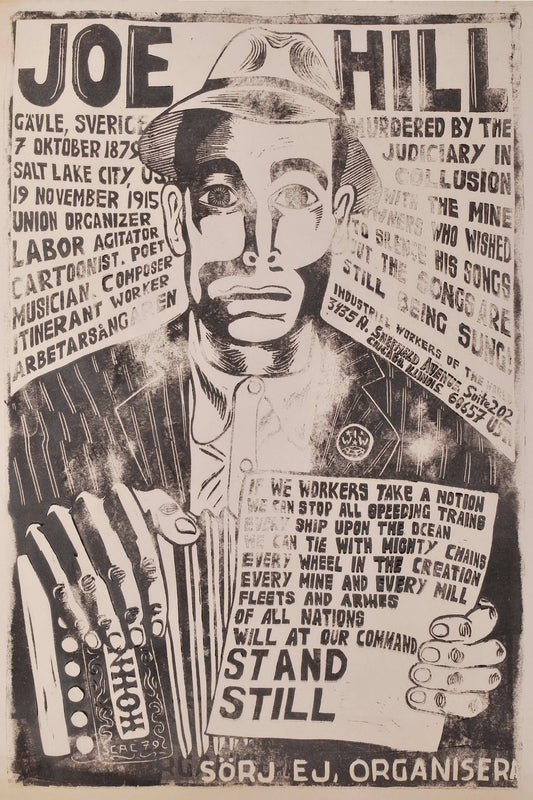 JOE HILL
GÄVLE, SVERIGE
7 OKTOBER 1879
SALT LAKE CITY,
19 NOVEMBER 1915
UNION ORGANIZER
LABOR AGITATOR
CARTOONIST. POET
MUSICIAN. COMPOSER
ITINERANT WORKER
ARBETARSÅNGAREN
MURDERED BY THE
JUDICIARY IN
COLLUSION
WITH THE MINE
OWNERS WHO WISHED
TO SILENCE HIS SONGS
BUT THE SONGS ARE
STILL BEING SUNG!
INDUSTRIAL WORKERS OF THE WORLD
3435 N. SHEFFIELD AVENUE Suite 202
CHICAGO, ILLINOIS 60657
IWW
IF WE WORKERS TAKE A NOTION
WE CAN STOP ALL SPEEDING TRAINS
EVERY SHIP UPON THE OCEAN
WE CAN TIE WITH MIGHTY CHAINS
EVERY WHEEL IN THE CREATION
EVERY MINE AND EVERY MILL
FLEETS AND ARMIES
OF ALL NATIONS
WILL AT OUR COMMAND
STAND
STILL
HOHNER
CAC 79
SÖRJ EJ, ORGANISERA